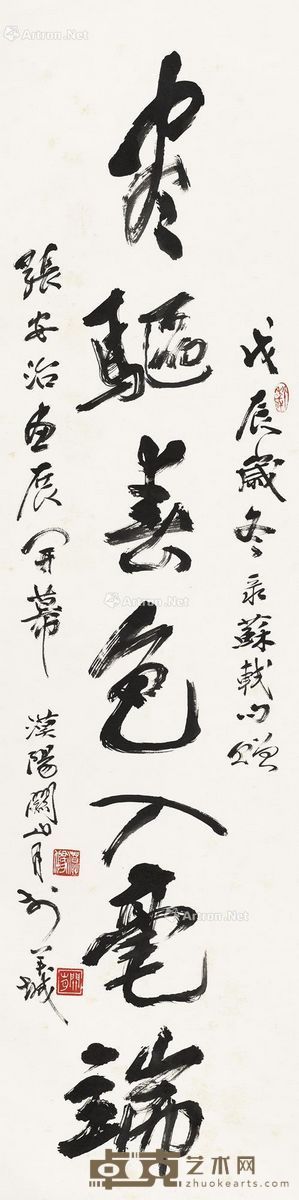 戊辰歲冬录蘇軾句贈
尽驅春色入毫端
張安治画展開幕 漢陽關山月於羊城
Artron.Net
Artron.Net
Artron.Net
Artron.Net
卓克艺术网
www.zhuokearts.com